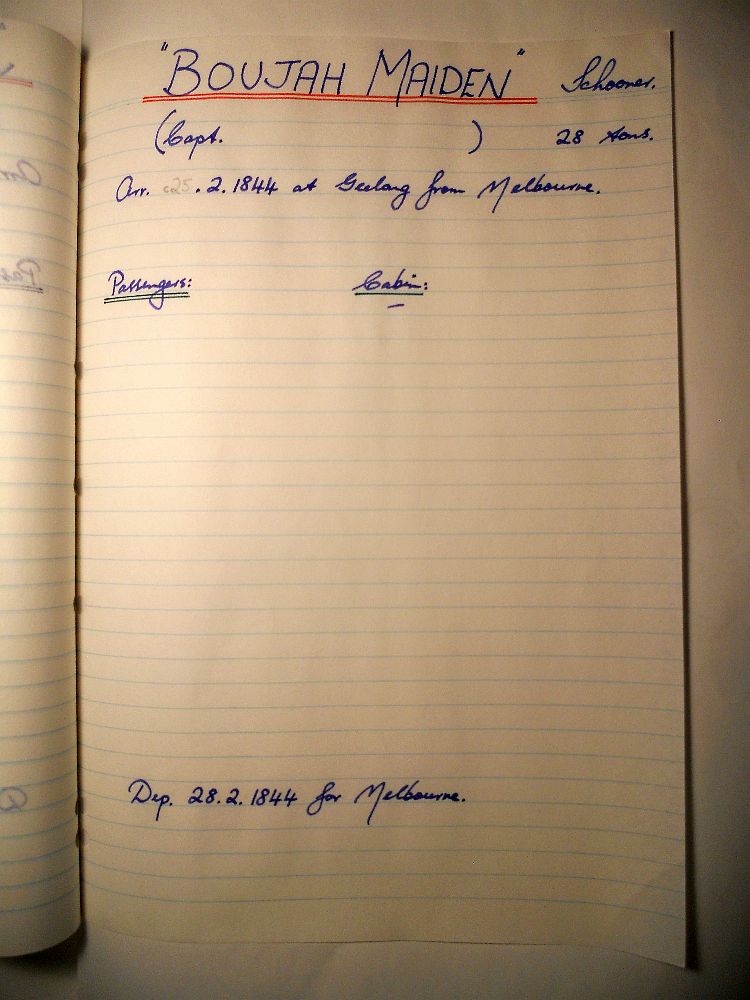 "BOUJAH MAIDEN" Schooner.
(Capt. ) 28 tons.
Arr. c25.2.1844 at Geelong from Melbourne.
Passengers: Cabin:
—
Dep. 28.2.1844 for Melbourne.